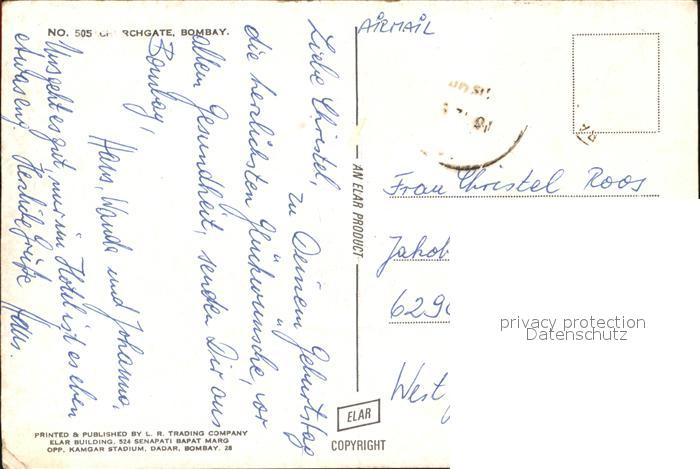 NO. 505 CHURCHGATE, BOMBAY.
AIRMAIL
Liebe Christel,
zu Deinem Geburtstag
die herzlichsten Glückwünsche, vor
allem Gesundheit, senden Dir aus
Bombay,
Hans, Wanda und Johanna.
Uns geht es gut, nur im Hotel ist es eben
etwas eng. Herzliche Grüße Hans.
AN ELAR PRODUCT
Frau Christel Roos
Jakob
6290
West
privacy protection
Datenschutz
PRINTED & PUBLISHED BY L. R. TRADING COMPANY
ELAR BUILDING, 524 SENAPATI BAPAT MARG
OPP. KAMGAR STADIUM, DADAR, BOMBAY. 28
ELAR
COPYRIGHT